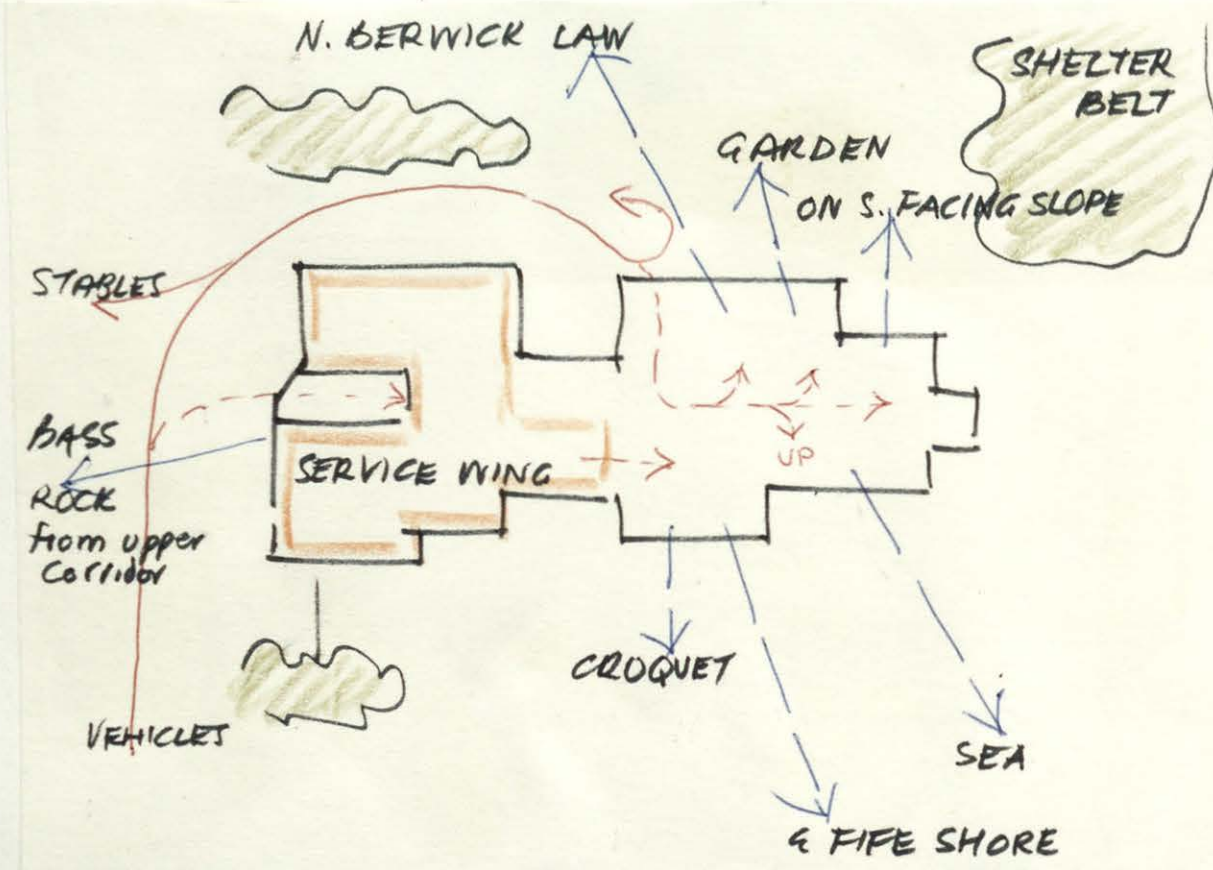 N. BERWICK LAW
SHELTER
BELT
GARDEN
ON S. FACING SLOPE
STABLES
BASS
ROCK
from upper
Corridor
SERVICE WING
UP
CROQUET
VEHICLES
SEA
& FIFE SHORE